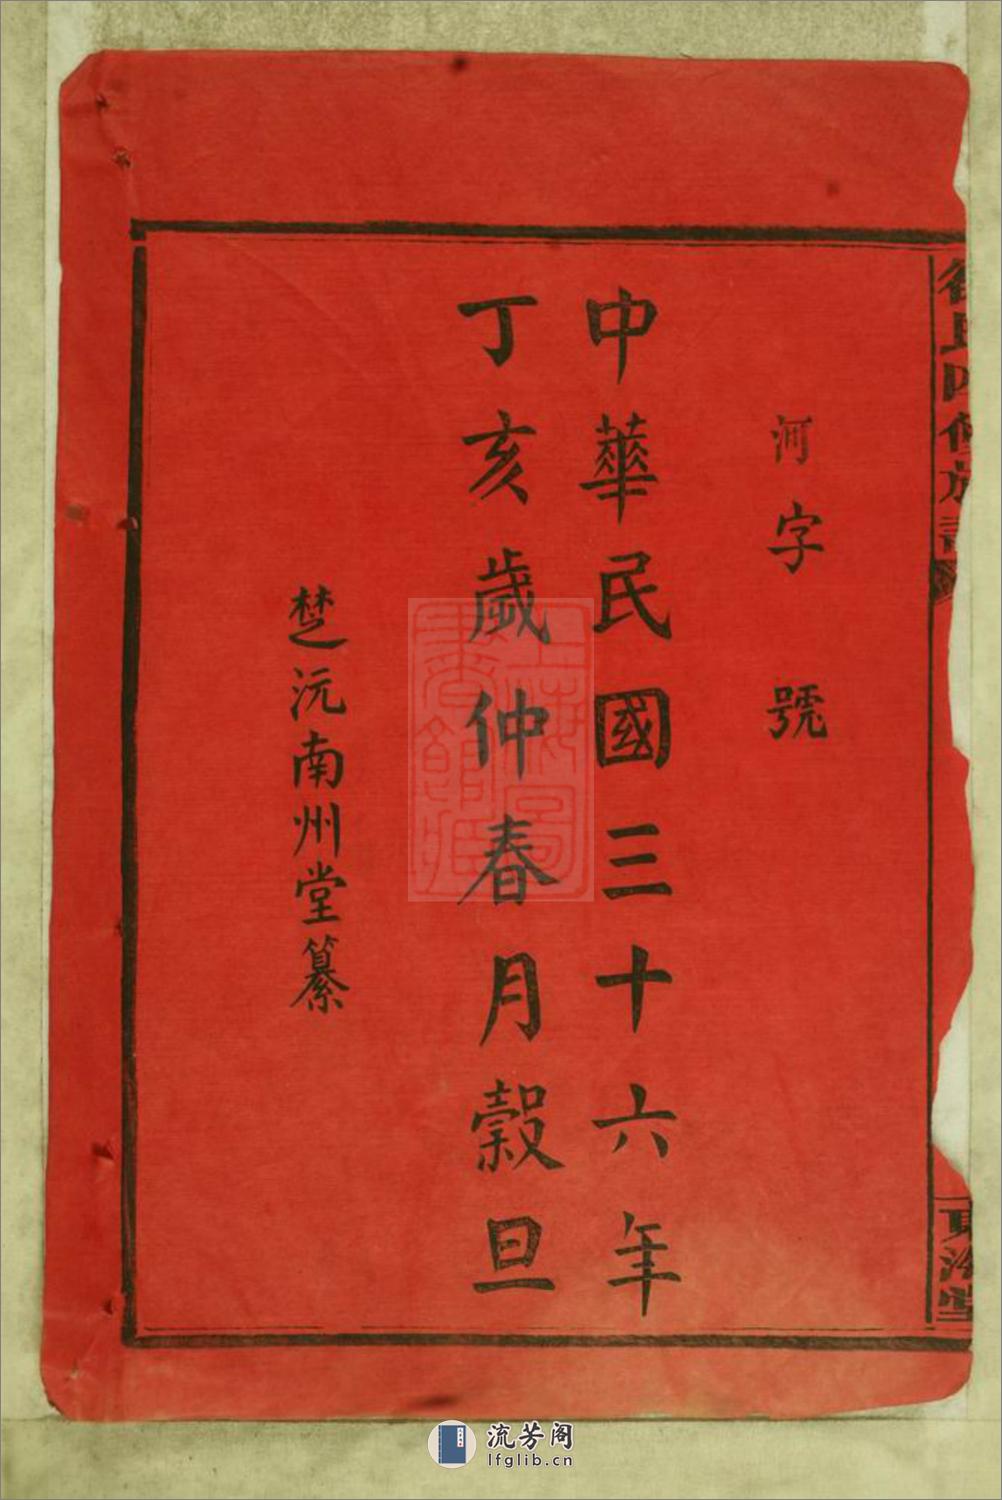 河字號
中華民國三十六年
丁亥歲仲春月穀旦
楚沅南州堂纂
氏四修族譜
堂
流芳阁
lfglib.cn